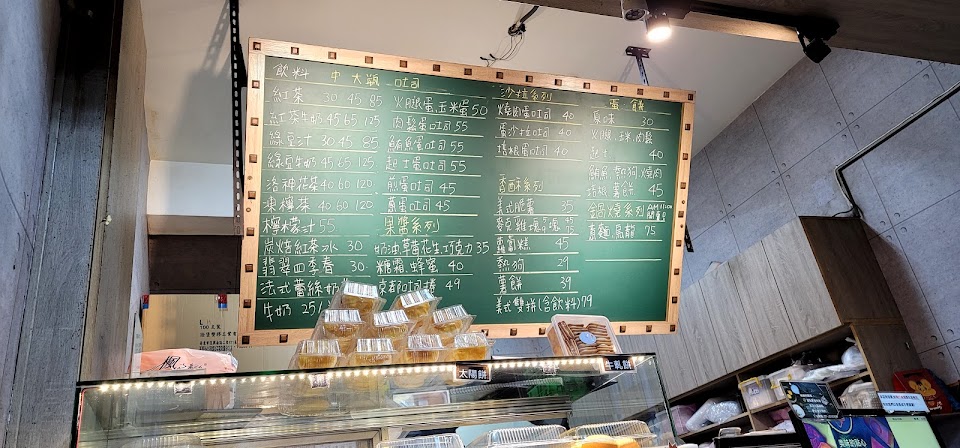 飲料 中 大 瓶
紅茶 30 45 85
紅茶牛奶 45 65 125
綠豆汁 30 45 85
綠豆牛奶 45 65 125
洛神花茶 40 60 120
凍檸茶 40 60 120
檸檬汁 55
炭焙紅茶冰 30
翡翠四季春 30
法式蕾絲奶
牛奶 25/
吐司
火腿蛋、玉米蛋 50
肉鬆蛋吐司 55
鮪魚蛋吐司 55
起士蛋吐司 55
煎蛋吐司 45
蔥蛋吐司 45
果醬系列
奶油、草莓、花生、巧克力 35
糖霜、蜂蜜 40
京都吐司捲 49
沙拉系列
燒肉蛋吐司 40
蛋沙拉吐司 40
培根蛋吐司 40
香酥系列
美式脆薯 35
麥克雞塊
蘿蔔糕 45
熱狗 29
薯餅 39
美式雙拼(含飲料)79
蛋餅
原味 30
火腿、玉米、肉鬆
起士 40
鮪魚 熱狗 燒肉
培根 薯餅 45
鍋燒系列
意麵、烏龍 75
太陽餅
牛軋餅